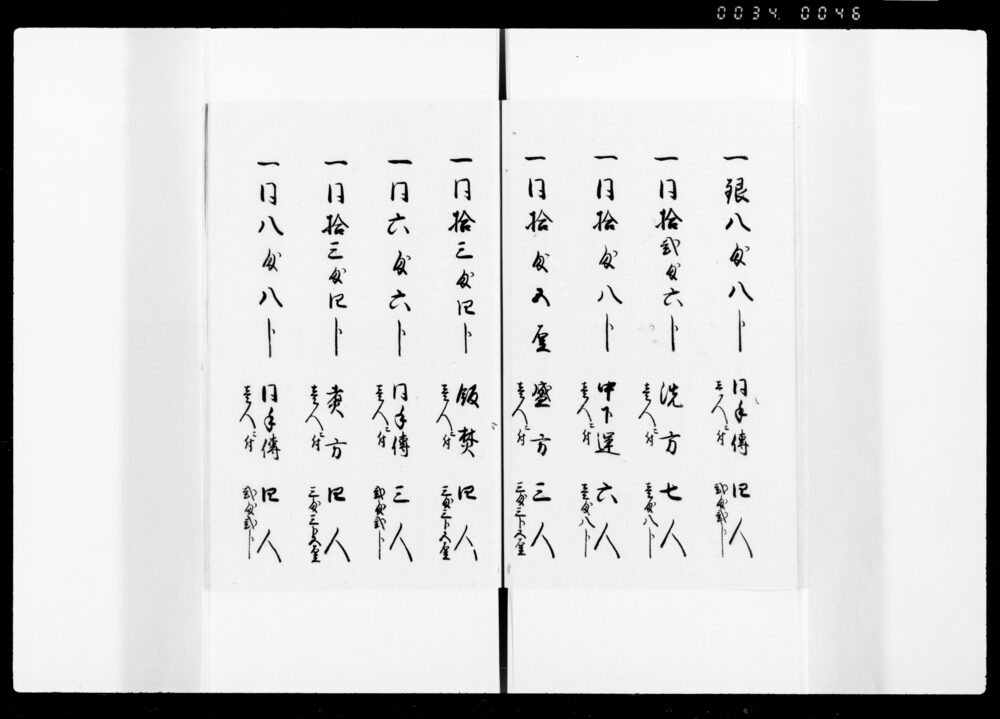 0034. 0046
一銀八匁八分 同手傳 四人
壱人ニ付 弐匁弐分
一同拾弐匁六分 洗方 七人
壱人ニ付 壱匁八分
一同拾匁八分 中下運 六人
壱人ニ付 壱匁八分
一同拾匁五厘 盛方 三人
壱人ニ付 三匁三分五厘
一同拾三匁四分 飯焚 四人
壱人ニ付 三匁三分五厘
一同六匁六分 同手傳 三人
壱人ニ付 弐匁弐分
一同拾三匁四分 煮方 四人
壱人ニ付 三匁三分五厘
一同八匁八分 同手傳 四人
壱人ニ付 弐匁弐分